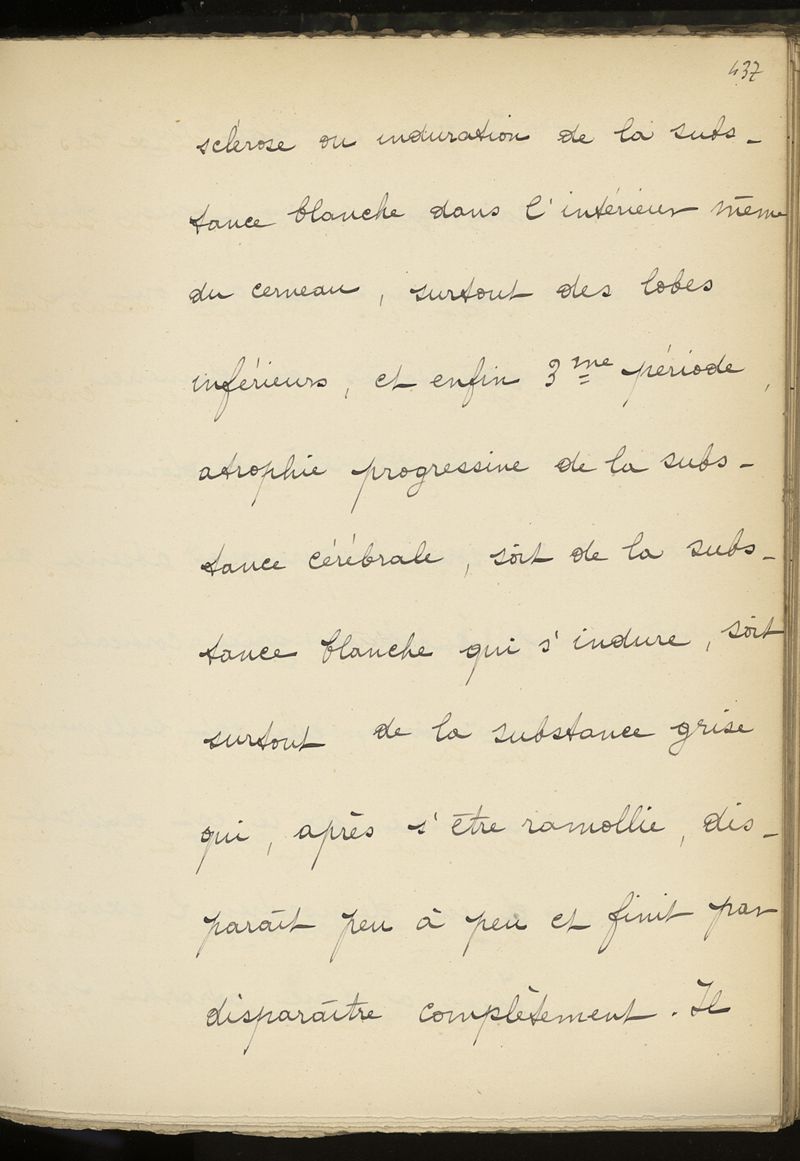 437
sclérose ou induration de la subs-
tance blanche dans l'intérieur même
du cerveau, surtout des lobes
inférieurs, et enfin 3me période,
atrophie progressive de la subs-
tance cérébrale, soit de la subs-
tance blanche qui s'indure, soit
surtout de la substance grise
qui, après s'être ramollie, dis-
paraît peu à peu et finit par
disparaître complètement. Il